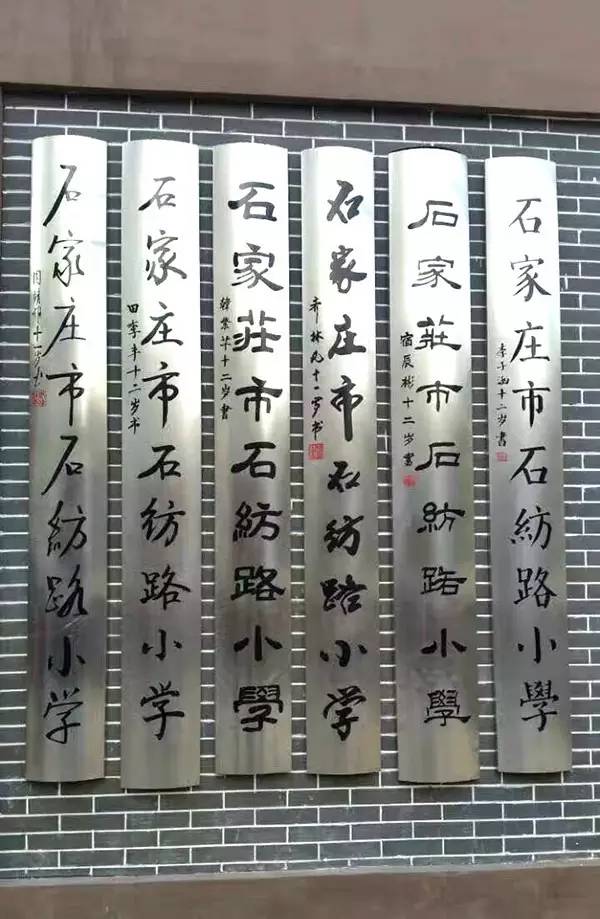 石家庄市石紡路小學
李子涵十二岁書
石家莊市石紡路小學
宿辰彬十二岁書
石家庄市石纺路小学
林凡十一岁书
石家莊市石紡路小學
十二岁書
石家庄市石纺路小学
田李丰十二岁书
石家庄市石紡路小学
十一岁书